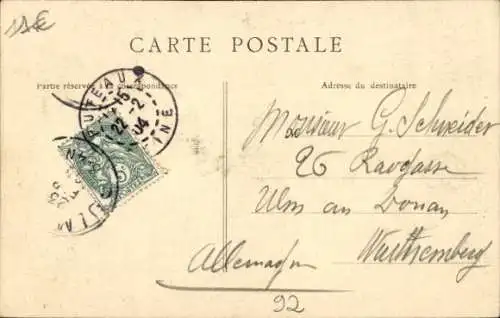 11€
CARTE POSTALE
Partie réservée à la correspondance
Adresse du destinataire
PUTEAUX
15
22 -2
04
SEINE
ULM
Monsieur G. Schneider
26
Ulm an Donau
Württemberg
Allemagne
92